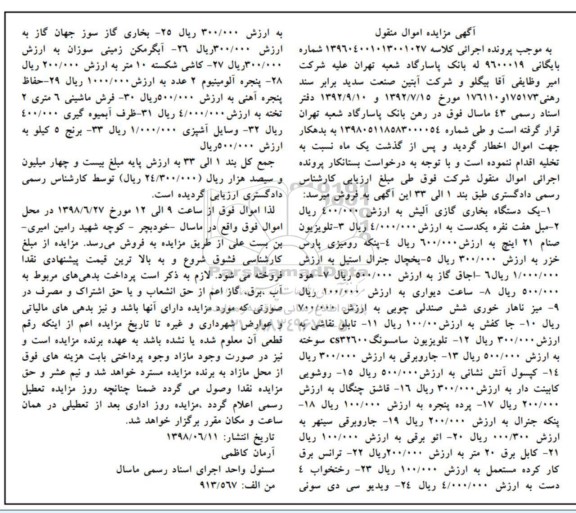 آگهی مزایده اموال منقول
به موجب پرونده اجرائی کلاسه ۱۳۹۶۰۴۰۰۱۰۱۳۰۰۱۰۲۷ شماره
بایگانی ۹۶۰۰۰۱۹ له بانک پاسارگاد شعبه تهران علیه شرکت
امیر وظایفی آقا بیگلو و شرکت آبتین صنعت سدید برابر سند
رهنی۱۷۵۱۷۳و۱۷۶۱۱۰ مورخ ۱۳۹۲/۷/۱۵ و ۱۳۹۲/۹/۱۰ دفتر
اسناد رسمی ۴۳ ماسال فوق در رهن بانک پاسارگاد شعبه تهران
قرار گرفته است و طی شماره ۱۳۹۸۰۵۱۱۸۵۸۳۰۰۰۰۵۴ به بدهکار
جهت اموال اخطار گردید و پس از گذشت یک ماه نسبت به
تخلیه اقدام ننموده است و با توجه به درخواست بستانکار پرونده
اجرائی اموال منقول شرکت فوق طی مبلغ ارزیابی کارشناس
رسمی دادگستری طبق بند ۱ الی ۳۳ این آگهی به فروش میرسد:
۱-یک دستگاه بخاری گازی آلیش به ارزش ۴۰۰/۰۰۰ ریال
۲-مبل هفت نفره یکدست به ارزش۴/۰۰۰/۰۰۰ ریال ۳-تلویزیون
صنام ۲۱ اینچ به ارزش۶۰۰/۰۰۰ ریال ۴-پنکه رومیزی پارس
خزر به ارزش ۳۰۰/۰۰۰ ریال ۵-یخچال جنرال استیل به ارزش
۱/۰۰۰/۰۰۰ ریال۶ -اجاق گاز به ارزش ۵۰۰/۰۰۰ ریال ۷- هود
۵۰۰/۰۰۰ ریال ۸- ساعت دیواری به ارزش ۱۰۰/۰۰۰ ریال
۹- میز ناهار خوری شش صندلی چوبی به ارزش ۷۰۰/۰۰۰
ریال ۱۰- جا کفش به ارزش۱۰۰/۰۰۰ ریال ۱۱- تابلو نقاشی به
ارزش۳۰۰/۰۰۰ ریال ۱۲- تلویزیون سامسونگcs۳۲۶۰۰ سوخته
به ارزش ۵۰۰/۰۰۰ ریال ۱۳- جاروبرقی به ارزش ۳۰۰/۰۰۰ ریال
۱۴- کپسول آتش نشانی به ارزش۵۰۰/۰۰۰ ریال ۱۵- روشویی
کابینت دار به ارزش۳۰۰/۰۰۰ ریال ۱۶- قاشق چنگال به ارزش
۲۰۰/۰۰۰ ریال ۱۷- پرده پنجره به ارزش ۱۰۰/۰۰۰ ریال ۱۸-
پنکه جنرال به ارزش ۲۰۰/۰۰۰ ریال ۱۹- جاروبرقی سینهر به
ارزش ۱۰۰/۳۰۰ ریال ۲۰- اتو برقی به ارزش ۱۰۰/۰۰۰ ریال
۲۱- کابل برق ۲۰ متر به ارزش ۲۰۰/۰۰۰ریال ۲۲- ترانس برق
کار کرده مستعمل به ارزش ۱۰۰/۰۰۰ ریال ۲۳- رختخواب ۴
دست به ارزش ۴/۰۰۰/۰۰۰ ریال ۲۴- ویدیو سی دی سونی
به ارزش ۳۰۰/۰۰۰ ریال ۲۵- بخاری گاز سوز جهان گاز به
ارزش ۳۰۰/۰۰۰ریال ۲۶- آبگرمکن زمینی سوزان به ارزش
۳۰۰/۰۰۰ریال ۲۷- کاشی شکسته ۱۰ متر به ارزش ۲۰۰/۰۰۰ ریال
۲۸- پنجره آلومینیوم ۲ عدد به ارزش۱/۰۰۰/۰۰۰ ریال ۲۹-حفاظ
پنجره آهنی به ارزش ۵۰۰/۰۰۰ریال ۳۰- فرش ماشینی ۶ متری ۲
تخته به ارزش۴/۰۰۰/۰۰۰ ریال ۳۱-ظرف آبمیوه گیری ۴۰۰/۰۰۰
ریال ۳۲- وسایل آشپزی ۱/۰۰۰/۰۰۰ ریال ۳۳- برنج ۵ کیلو به
ارزش ۵۰۰/۰۰۰ریال
جمع کل بند ۱ الی ۳۳ به ارزش پایه مبلغ بیست و چهار میلیون
و سیصد هزار ریال (۲۴/۳۰۰/۰۰۰ ریال) توسط کارشناس رسمی
دادگستری ارزیابی گردیده است.
لذا اموال فوق از ساعت ۹ الی ۱۲ مورخ ۱۳۹۸/۶/۲۷ در محل
اموال فوق واقع در ماسال -خودبچر - کوچه شهید رامین امیری-
بن بست علی از طریق مزایده به فروش می‌رسد. مزایده از مبلغ
کارشناسی فشوق شروع و به بالا ترین قیمت پیشنهادی نقدا
فروخته می شود. لازم به ذکر است پرداخت بدهی‌های مربوط به
آب ،برق، گاز اعم از حق انشعاب و یا حق اشتراک و مصرف در
صورتی که مورد مزایده دارای آنها باشد و نیز بدهی های مالیاتی
و عوارض شهرداری و غیره تا تاریخ مزایده اعم از اینکه رقم
قطعی آن معلوم شده یا نشده باشد به عهده برنده مزایده است و
نیز در صورت وجود مازاد وجوه پرداختی بابت هزینه های فوق
از محل مازاد به برنده مزایده مسترد خواهد شد و نیم عشر و حق
مزایده نقدا وصول می گردد ضمنا چنانچه روز مزایده تعطیل
رسمی اعلام گردد ،مزایده روز اداری بعد از تعطیلی در همان
ساعت و مکان مقرر برگزار خواهد شد.
تاریخ انتشار: ۱۳۹۸/۰۶/۱۱
آرمان کاظمی
مسئول واحد اجرای اسناد رسمی ماسال
من الف: ۹۱۳/۵۶۷